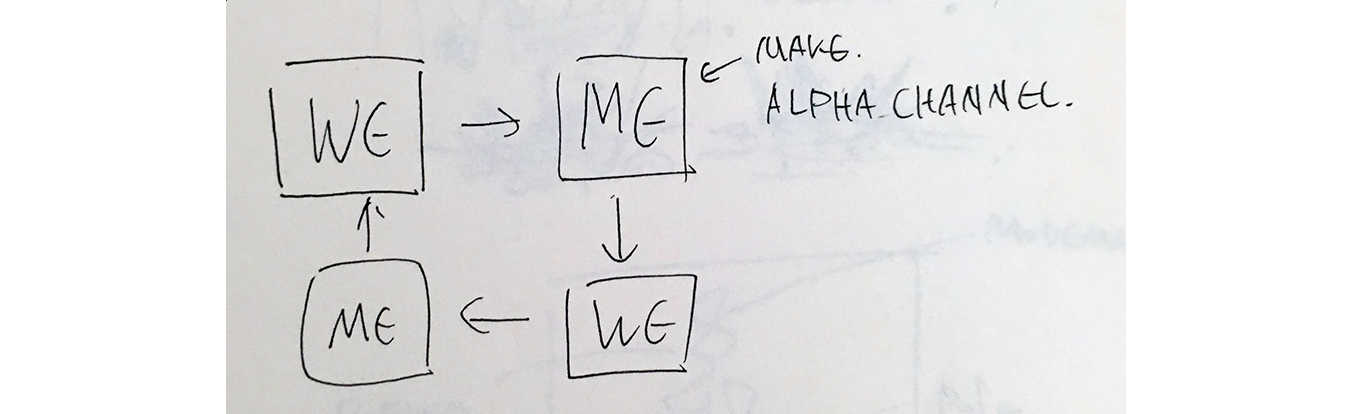 WE → ME ← MAKE.
ALPHA CHANNEL.
ME ← WE